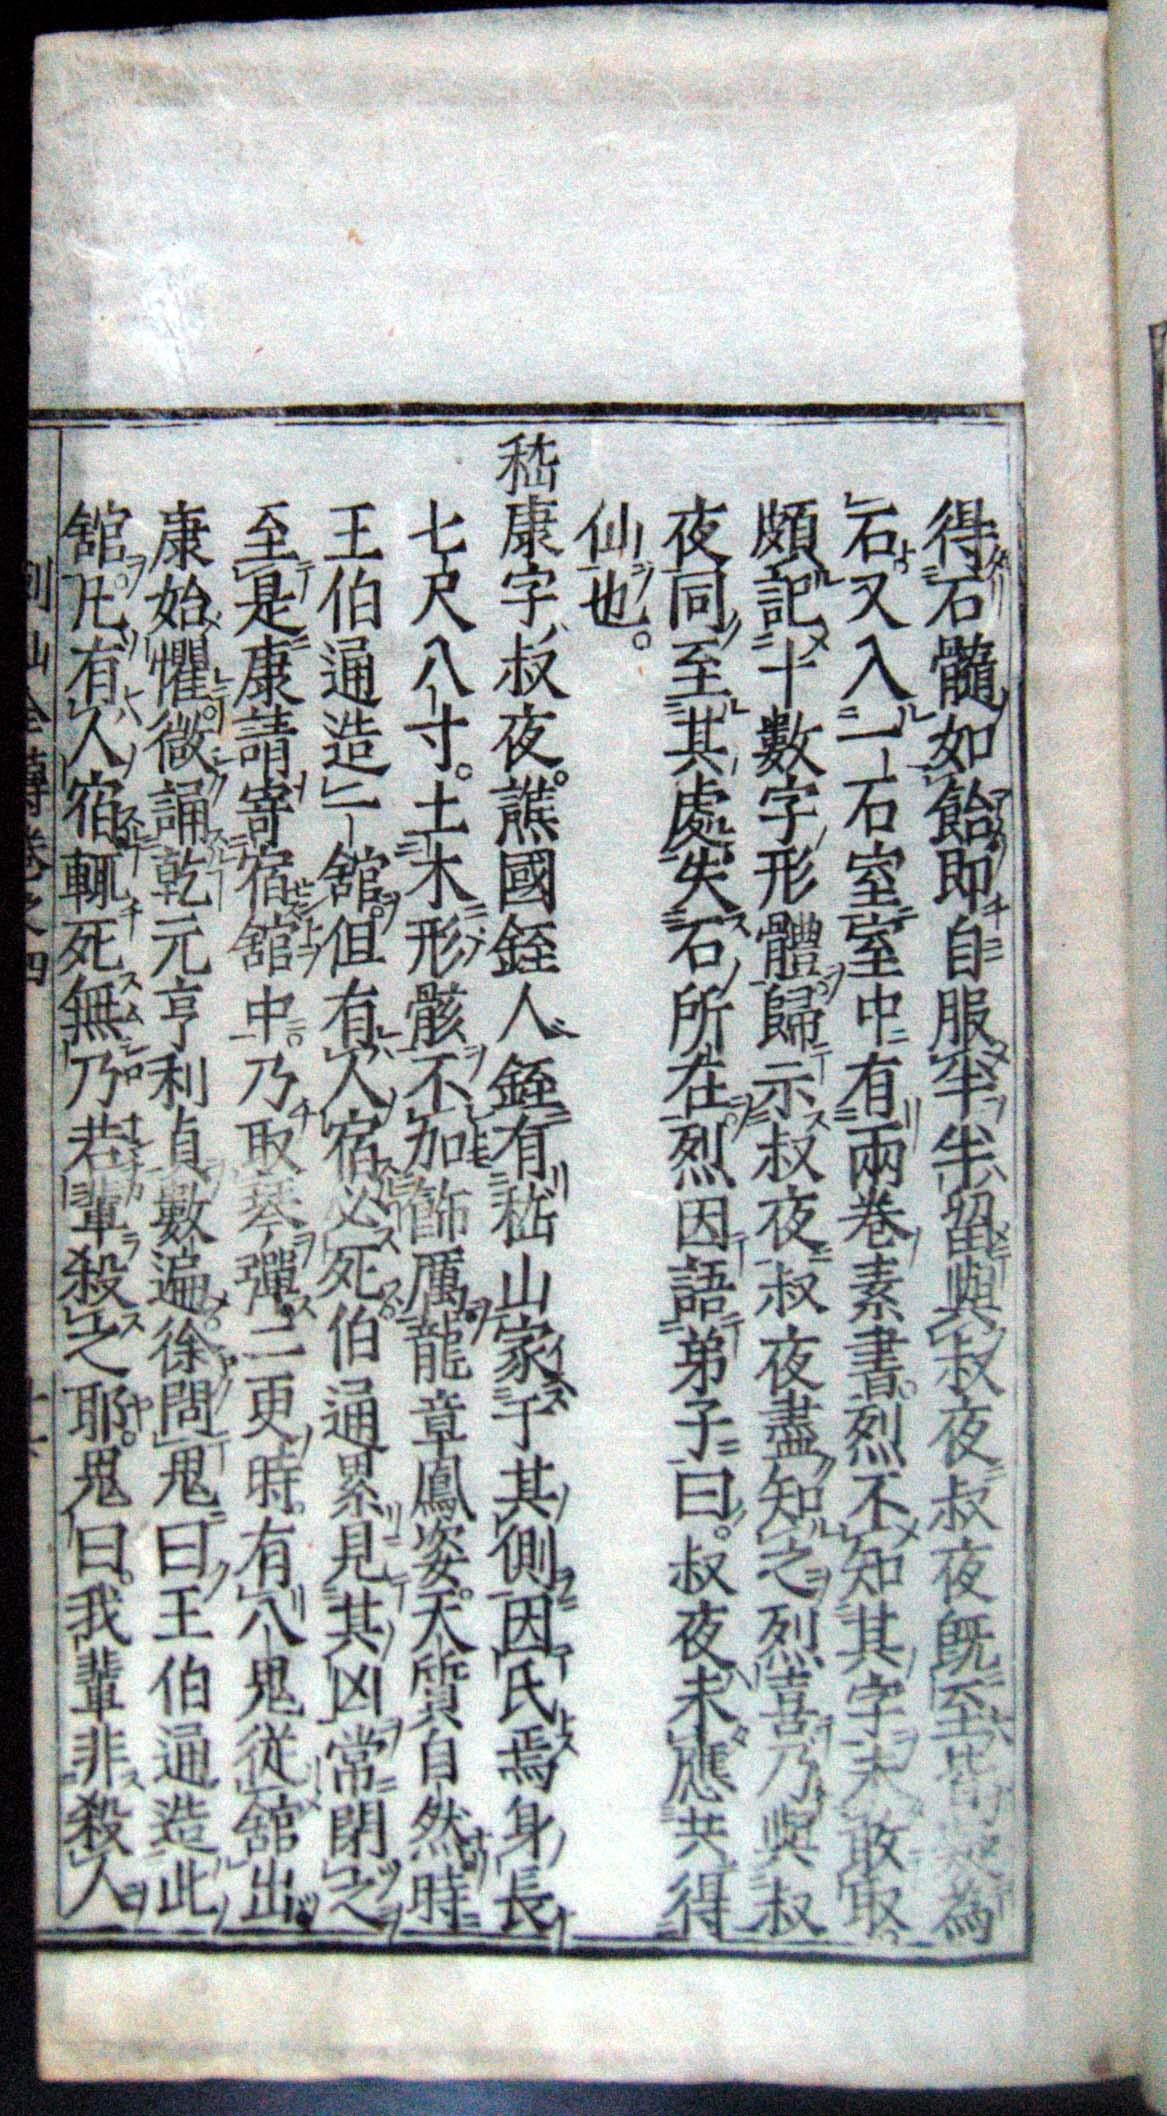 得石髓如飴即自服半半留與叔夜叔夜既至皆凝為
石又入一石室室中有兩卷素書烈不知其字未敢取
頗記十數字形體歸示叔夜叔夜盡知之烈喜乃與叔
夜同至其處失石所在烈因語弟子曰。叔夜未應共得
仙也。
嵇康字叔夜。譙國銍人銍有嵇山家于其側因氏焉身長
七尺八寸。土木形骸不加飾厲龍章鳳姿。天質自然時
王伯通造一舘但有人宿必死伯通累見其凶常閉之
至是康請寄宿舘中乃取琴彈二更時。有八鬼從舘出
康始懼。微誦乾元亨利貞數遍徐問鬼曰王伯通造此
舘。凡有人宿輒死無乃若輩殺之耶。鬼曰。我輩非殺人
列仙全傳卷之四